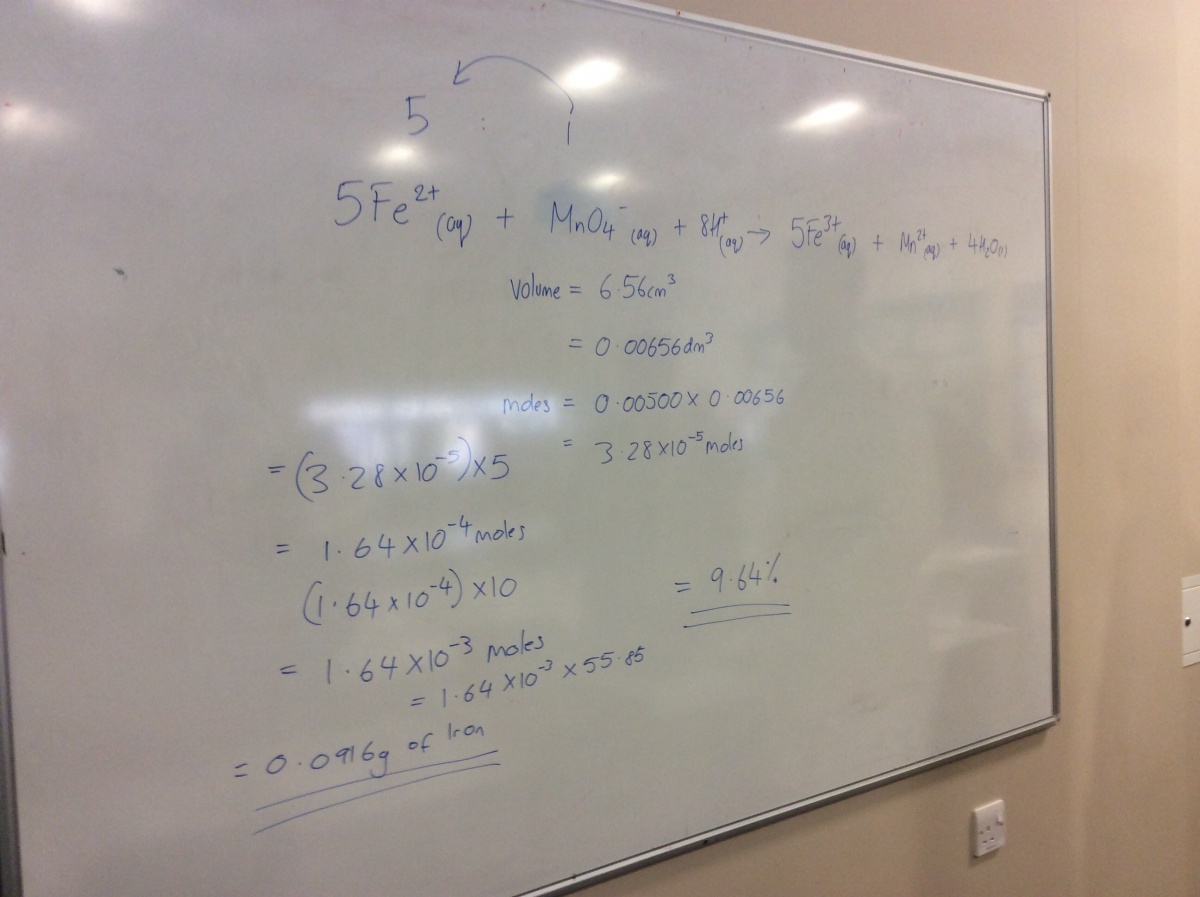 5 : 1
5Fe²⁺(aq) + MnO₄⁻(aq) + 8H⁺(aq) → 5Fe³⁺(aq) + Mn²⁺(aq) + 4H₂O(l)
Volume = 6.56cm³
= 0.00656dm³
moles = 0.00500 × 0.00656
= 3.28×10⁻⁵ moles
= (3.28×10⁻⁵)×5
= 1.64×10⁻⁴ moles
(1.64×10⁻⁴)×10
= 1.64×10⁻³ moles
= 1.64×10⁻³ × 55.85
= 0.0916g of Iron
= 9.64%